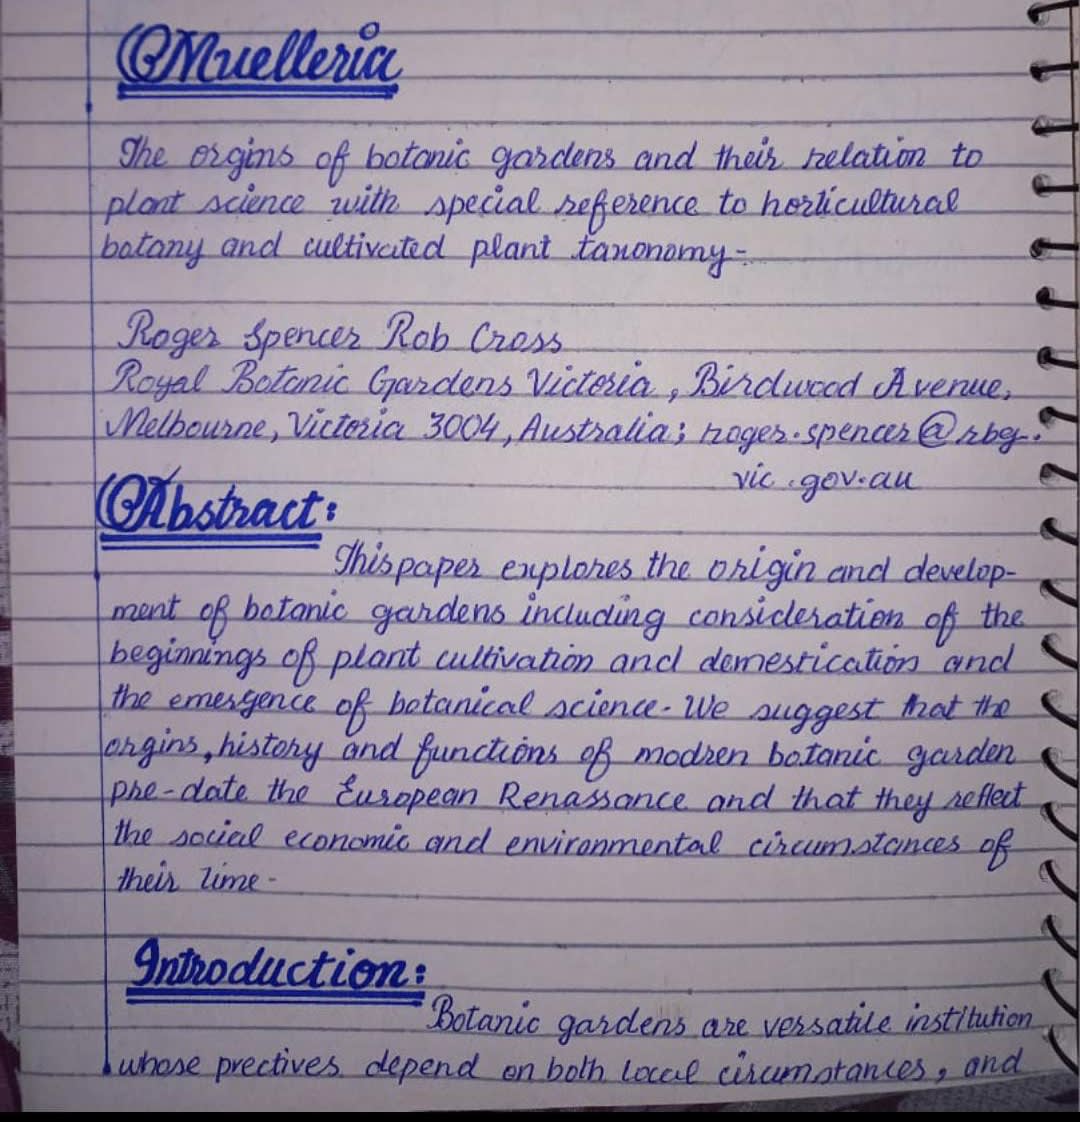 Muelleria
The orgins of botanic gardens and their relation to
plant science with special reference to horticultural
botany and cultivated plant taxonomy-
Roger Spencer Rob Cross
Royal Botanic Gardens Victoria, Birdwood Avenue,
Melbourne, Victoria 3004, Australia; roger.spencer@rbg.
vic.gov.au
Abstract:
This paper explores the origin and develop-
ment of botanic gardens including consideration of the
beginnings of plant cultivation and domestication and
the emergence of botanical science- We suggest that the
orgins, history and functions of modren botanic garden
pre-date the European Renassance and that they reflect
the social economic and environmental circumstances of
their time-
Introduction:
Botanic gardens are versatile institution
whose prectives depend on both local circumstances, and